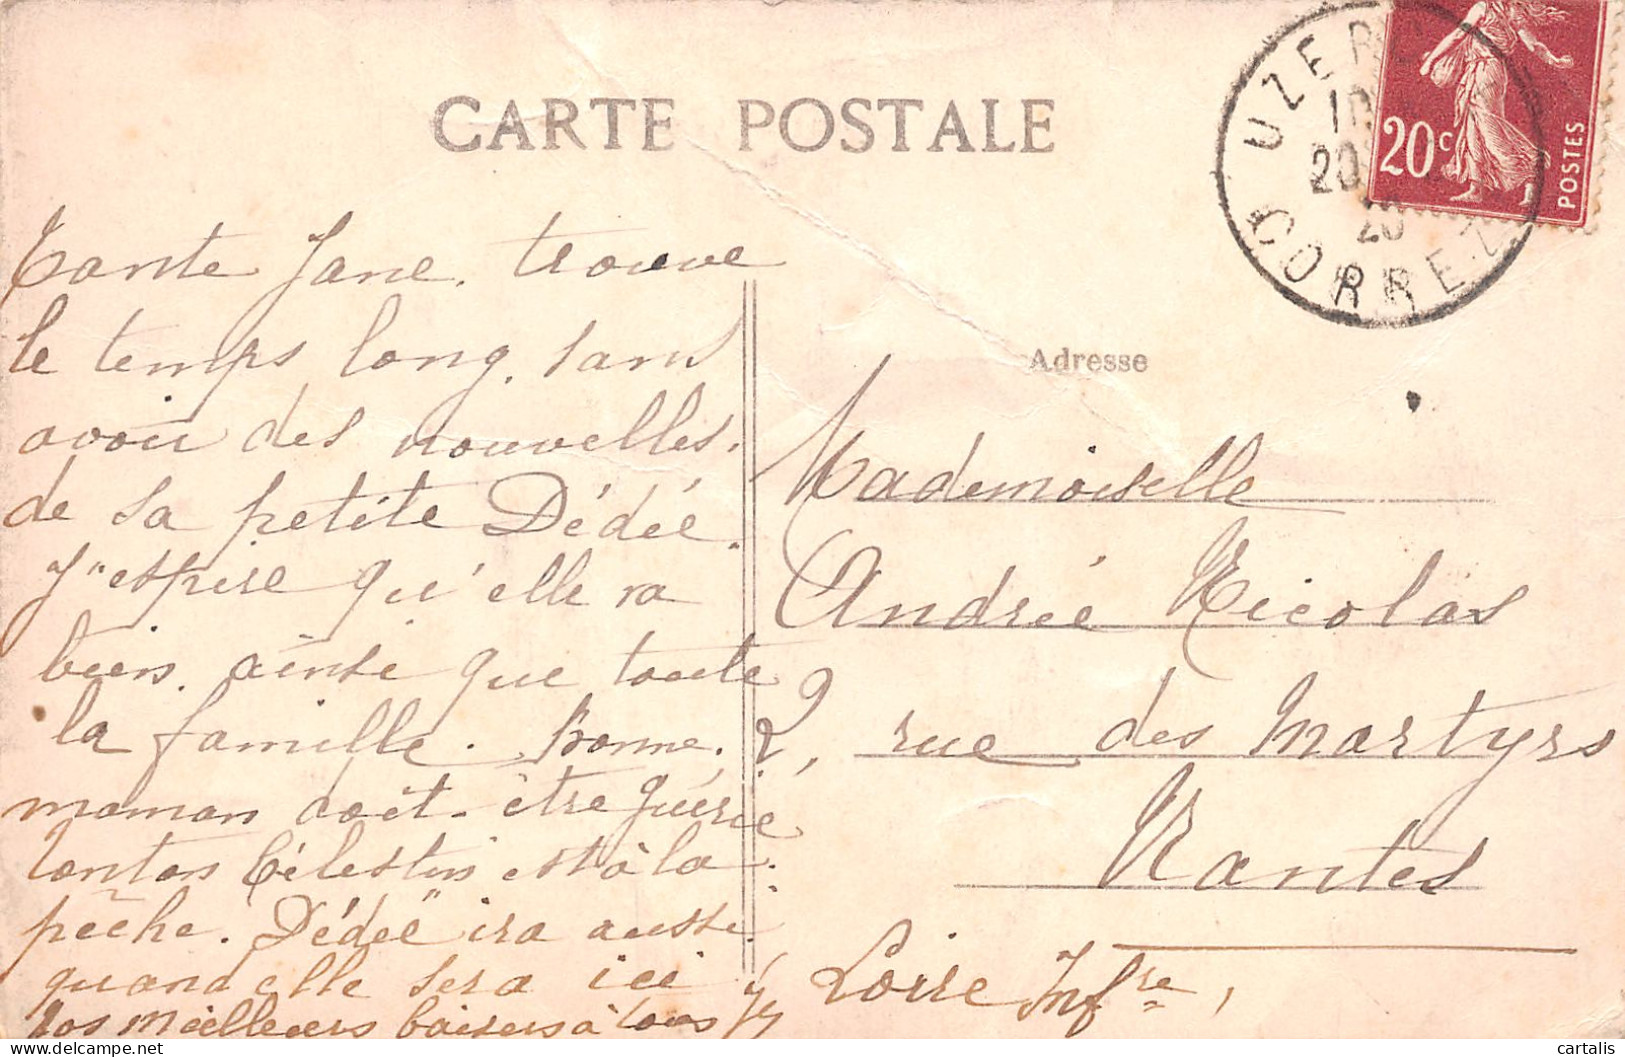 CARTE POSTALE
UZER
CORREZ
20
20c
POSTES
Tante Jane. trouve
le temps long. sans
avoir des nouvelles.
de sa petite Dédée.
J"espère qu'elle va
bien. ainsi que toute
la famille. Bonne.
maman doit. être guérie
Tonton Célestin est à la
pêche. Dédée" ira aussi.
quand elle sera ici
Nos meilleurs baisers à tous
Adresse
Mademoiselle
Andrée Nicolas
2, rue des Martyrs
Nantes
Loire Infre,
cartalis
delcampe.net